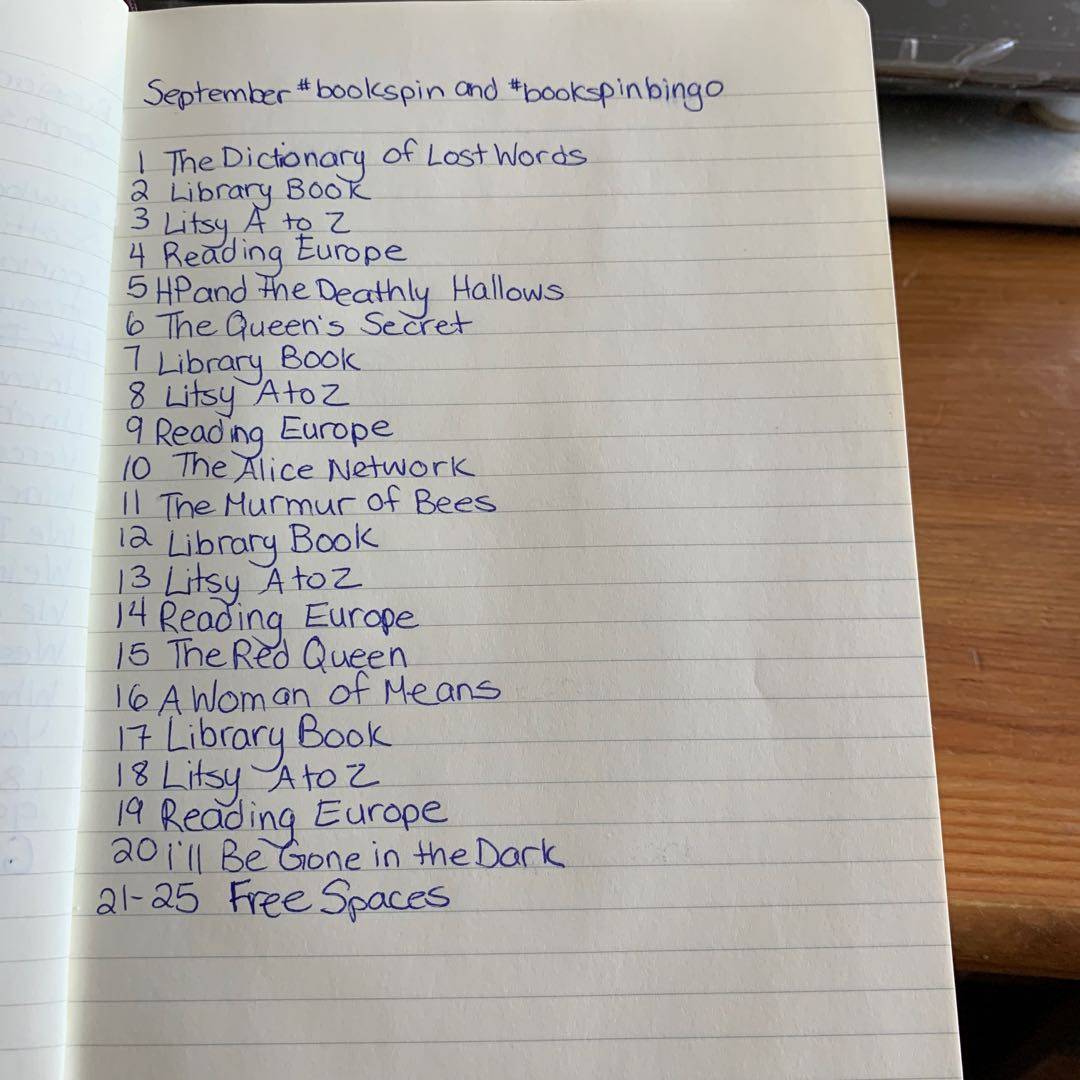 September #bookspin and #bookspinbingo
1 The Dictionary of Lost Words
2 Library Book
3 Litsy A to Z
4 Reading Europe
5 HP and the Deathly Hallows
6 The Queen's Secret
7 Library Book
8 Litsy A to Z
9 Reading Europe
10 The Alice Network
11 The Murmur of Bees
12 Library Book
13 Litsy A to Z
14 Reading Europe
15 The Red Queen
16 A Woman of Means
17 Library Book
18 Litsy A to Z
19 Reading Europe
20 I'll Be Gone in the Dark
21-25 Free Spaces